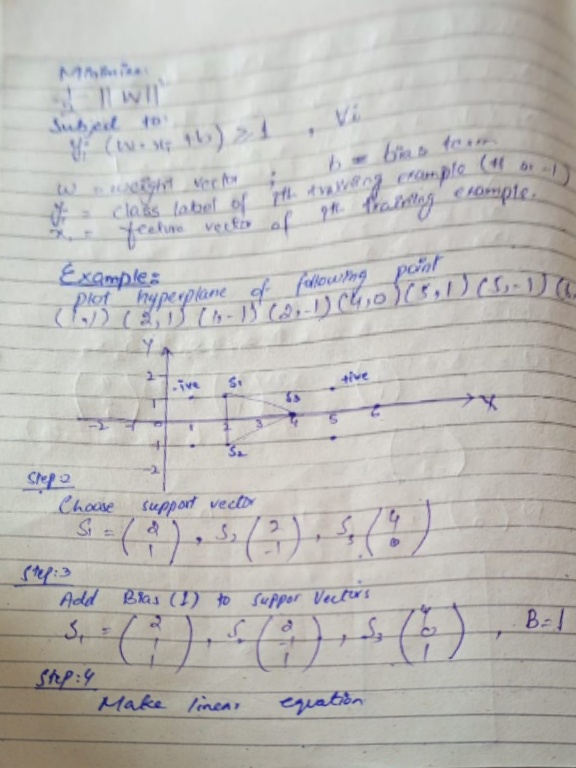 || W ||
Subject to:
yi (w · xi + b) ≥ 1 , ∀i
w = weight vector ; b = bias term
yi = class label of ith training example (+1 or -1)
xi = feature vector of ith training example.
Example:
plot hyperplane of following point
(1,1) (2,1) (1,-1) (2,-1) (4,0) (5,1) (5,-1)
Y
2
-ive S1 +ive
1 S3
-2 -1 0 1 2 3 4 5 6 X
-1 S2
-2
Step:2
Choose support vector
S1 = (2 1) , S2 (2 -1) , S3 (4 0)
Step:3
Add Bias (1) to suppor Vectors
S1 = (2 1 1) , S (2 -1 1) , S3 (4 0 1) , B=1
Step:4
Make linear equation